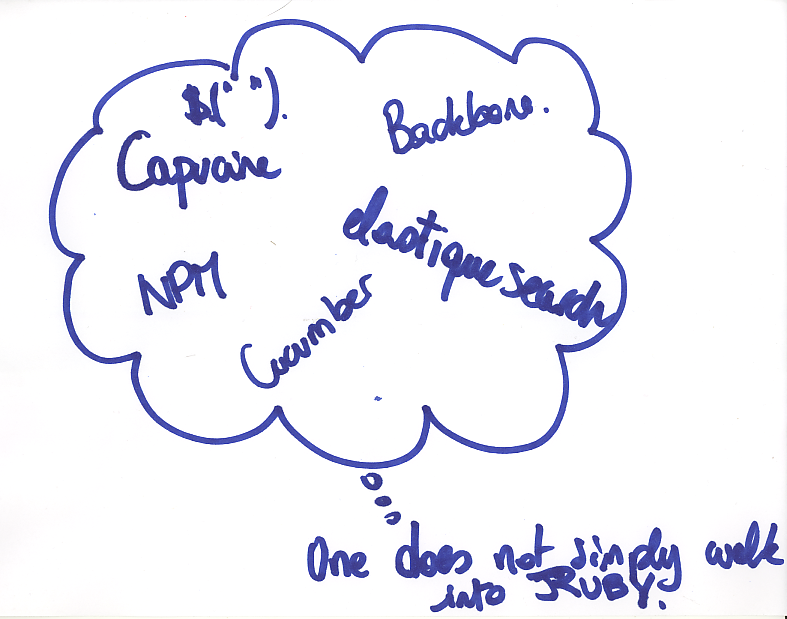 $(" ").
Backbone.
Capybara
elastique search
NPM
Cucumber
One does not simply walk
into JRUBY.